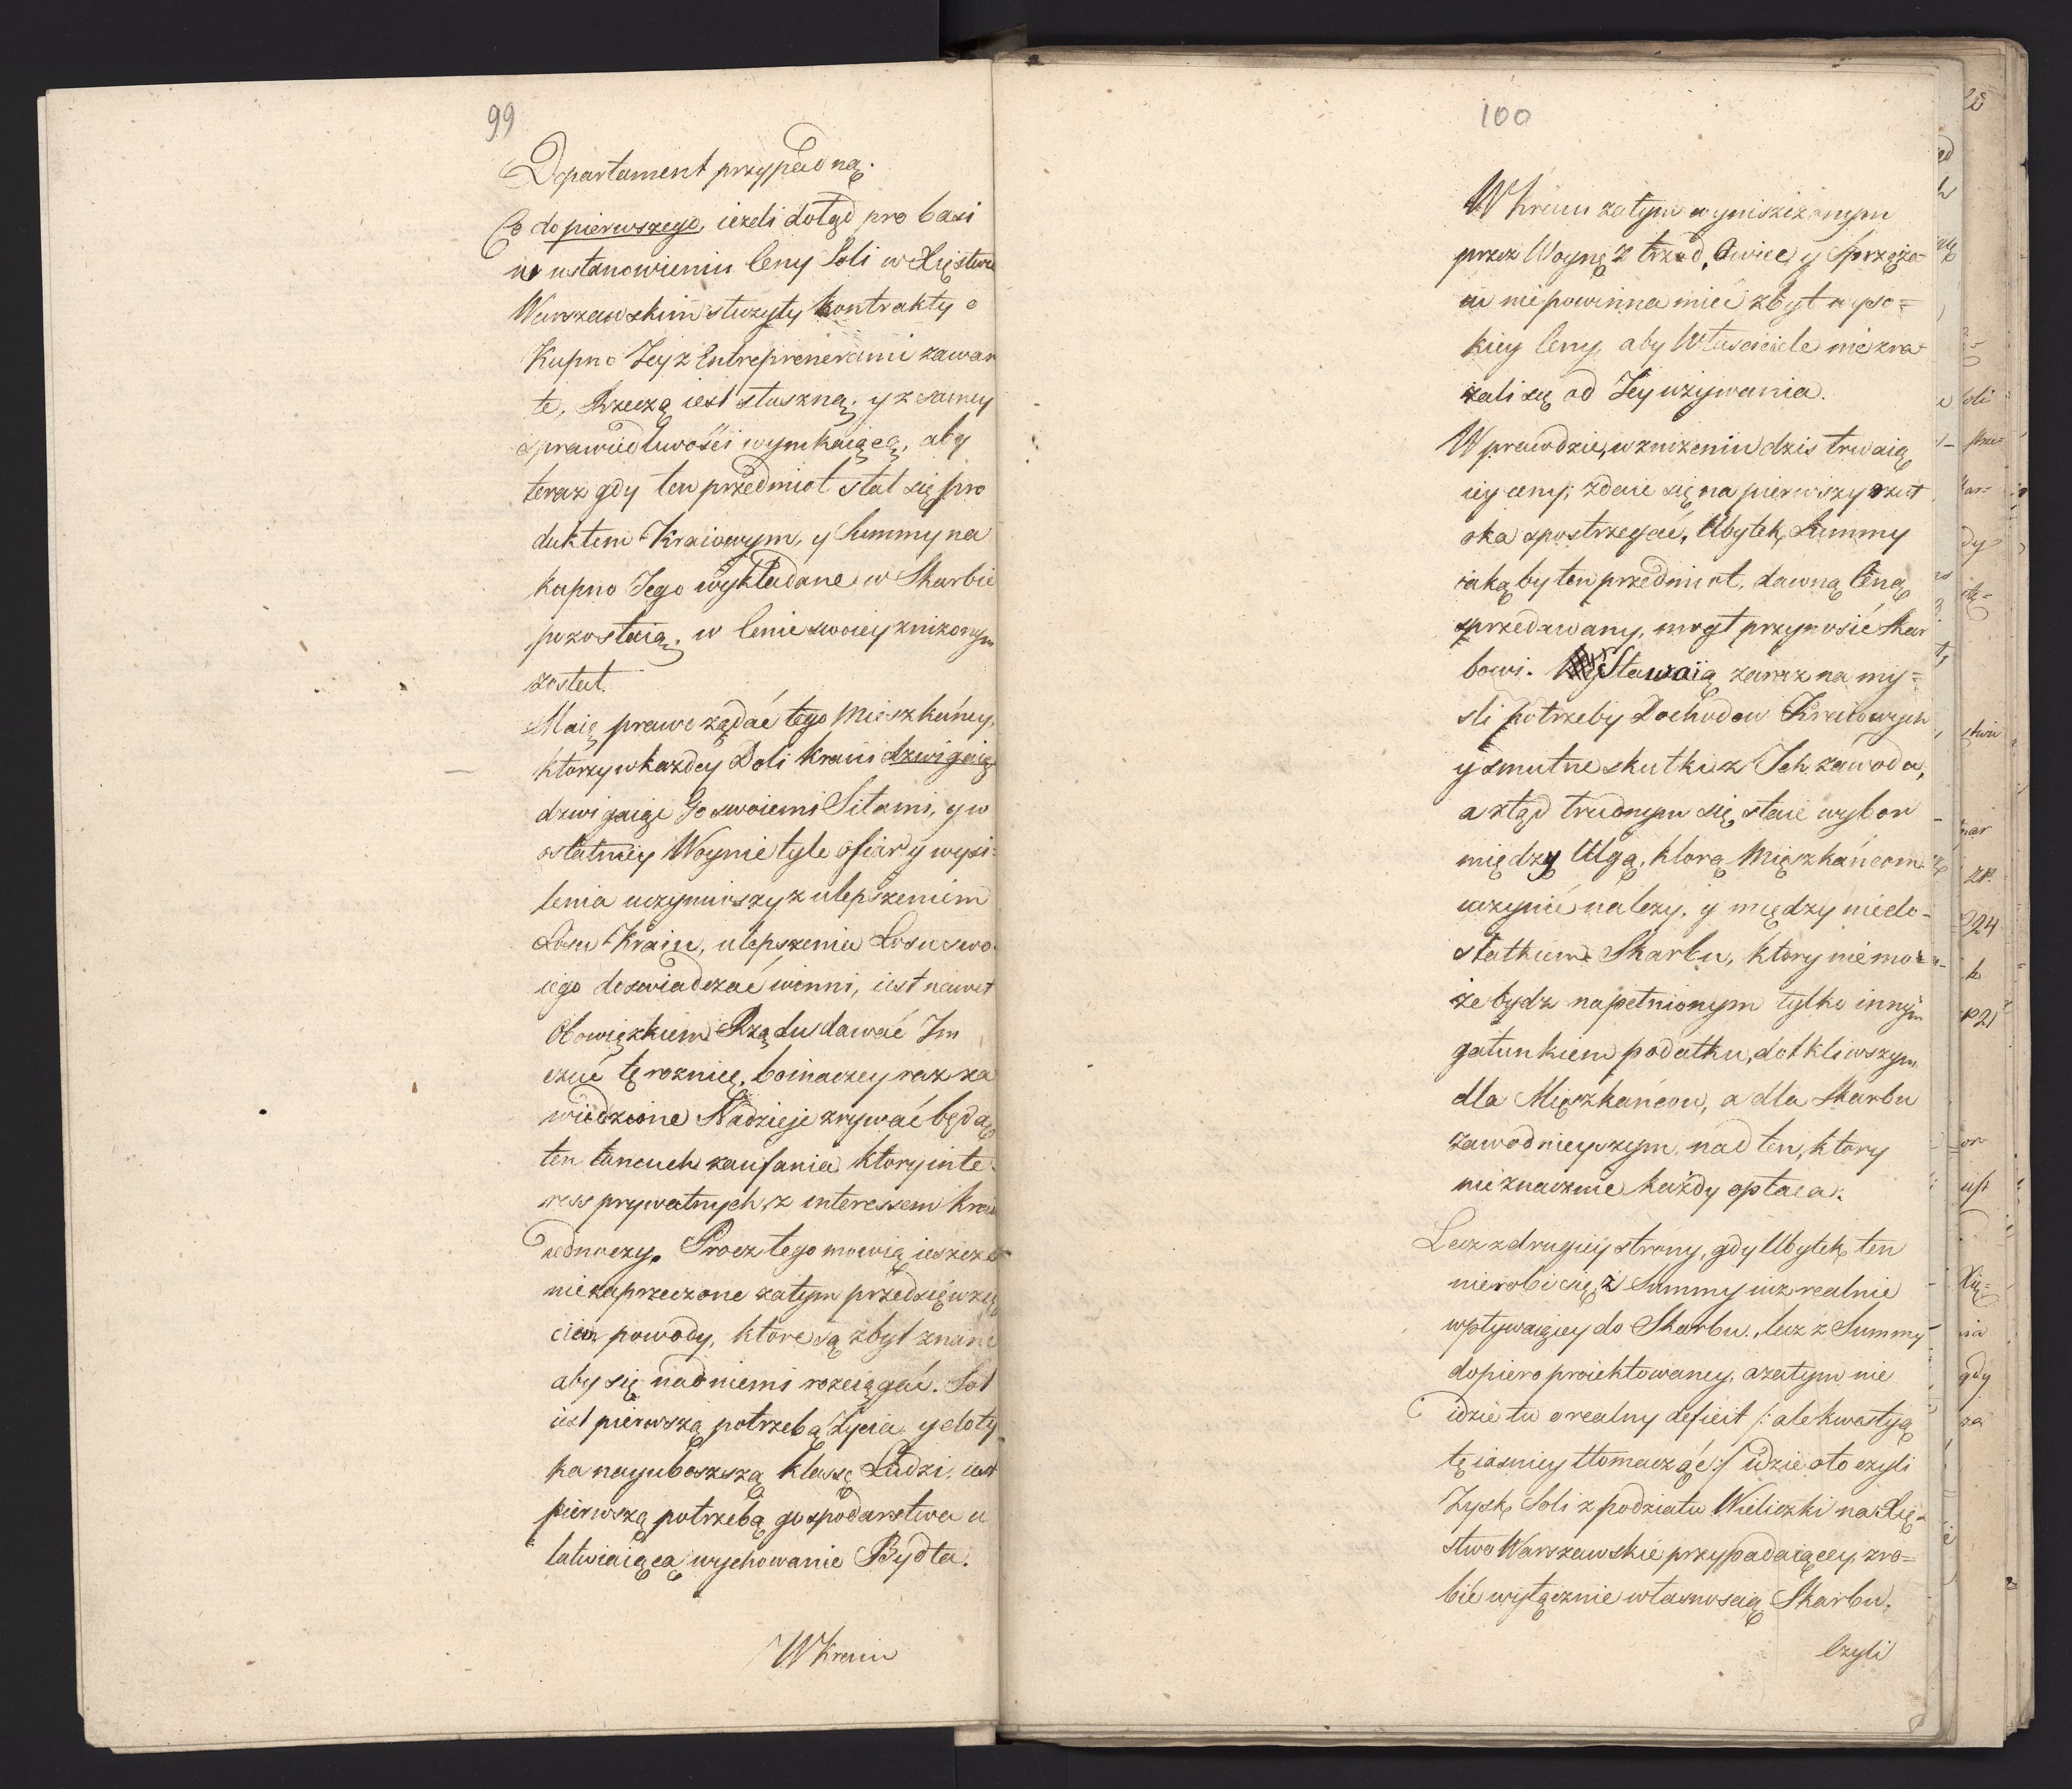 99
Departament przypadną.
Co do pierwszego, ieżeli dotąd pro basi
w ustanowieniu Ceny Soli w Xięstwie
Warszawskim służyły kontrakty o
Kupno Jey z Entreprenerami zawar
te, Rzeczą iest słuszną, y z samey
sprawiedliwości wynikaiącą, aby
teraz gdy ten przedmiot stał się pro
duktem Kraiowym, y Summy na
kupno Jego wykładane w Skarbie
pozostaią, w Cenie swoiey zniżonym
został.
Maią prawo żądać tego Mieszkańcy,
ktorzy w każdey Doli kraiu dzwigaią
dzwigaiąc Go swoiemi Siłami, y w
ostatniey Woynie tyle ofiar y wysi-
lenia uczyniwszy z ulepszeniem
Losu Kraiu, ulepszenia Losu swo
iego doswiadczać winni, iest nawet
Obowiązkiem Rządu dawać Im
czuć tę roznicę, bo inaczey raz za
wiedzione Nadzieje zrywać będą
ten łancuch zaufania ktory inte-
ress prywatnych, z interessem kraiu
iednoczy. Procz tego mowią ieszcze
niezaprzeczone zatym przedsięwzię
ciem powody, ktore są zbyt znane
aby się nad niemi rozciągać. Sol
iest pierwszą potrzebą Życia, y doty
ka nayuboższą klassę Ludzi, iest
pierwszą potrzebą gospodarstwa u
łatwiaiącą wychowanie Bydła.
W Kraiu
100
W Kraiu zatym wyniszczonym
przez Woynę z trzod, Owiec, y Sprzęża-
iu nie powinna mieć zbyt wyso=
kiey Ceny, aby Właściciele nie zra-
żali się od Jey używania.
Wprawdzie, w zniżeniu dzis trwaią
cey ceny, zdaie się na pierwszy rzut
oka spostrzegać, Ubytek Summy
iaką by ten przedmiot, dawną Ceną
sprzedawany, mogł przynosić Skar
bowi. Stawaią zaraz na my=
sli potrzeby Dochodow Kraiowych
y smutne skutki z Ich zawodu,
a ztąd trudnym się staie wybor
między Ulgą, ktorą Mięszkańcom
uczynić należy, y między niedo-
statkiem Skarbu, ktory nie mo-
że bydz napełnionym tylko innym
gatunkiem podatku, dotkliwszym
dla Mięszkańcow, a dla Skarbu
zawodnieyszym, nad ten, ktory
nieznacznie każdy opłaca.
Lecz z drugiey strony, gdy Ubytek ten
nie robi się z Summy iuż realnie
wpływaiącey do Skarbu, lecz z Summy
dopiero proiektowaney, a zatym nie
idzie tu o realny deficit /: ale kwestyą
tę iasniey tłomacząc :/ idzie o to czyli
Zysk Soli z podziału Wieliczki na Xię-
stwo Warszawskie przypadaiącey, zro=
bić wyłącznie własnością Skarbu,
Czyli